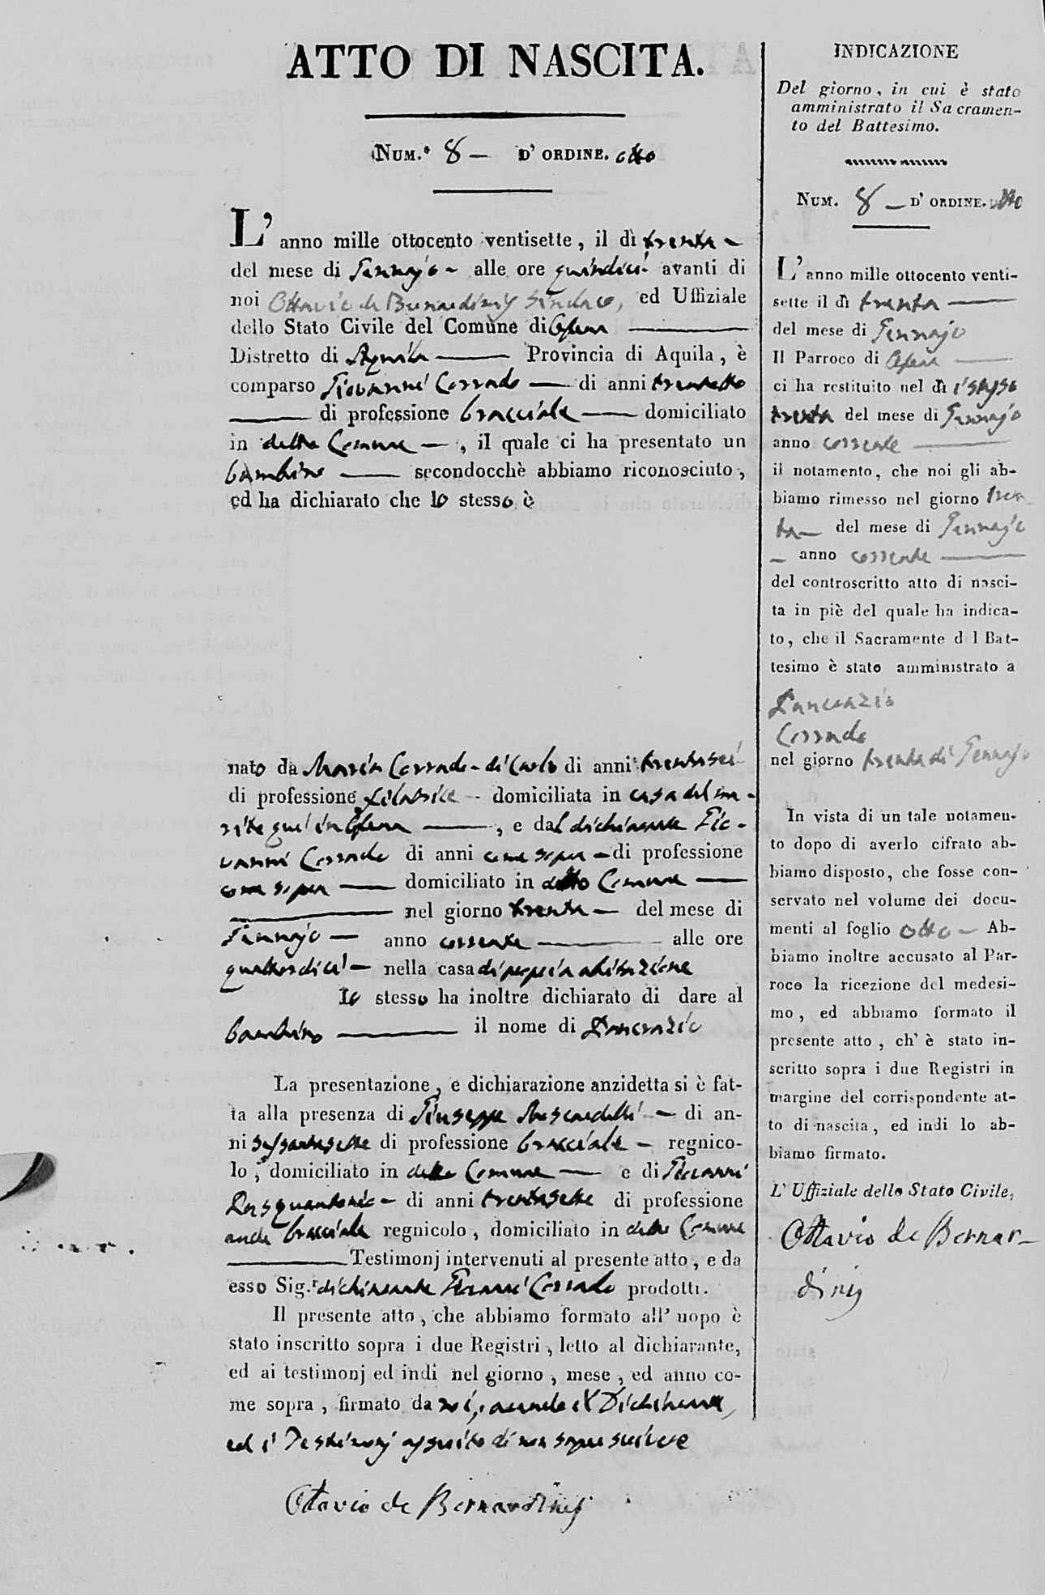 ATTO DI NASCITA.
NUM.° 8 — D' ORDINE. otto
L' anno mille ottocento ventisette, il dì trenta —
del mese di Gennajo — alle ore quindici avanti di
noi Ottavio de Bernardinis Sindaco, ed Uffiziale
dello Stato Civile del Comune di
Distretto di Aquila — Provincia di Aquila, è
comparso Giovanni Corrado — di anni trentotto
— di professione bracciale — domiciliato
in detto Comune —, il quale ci ha presentato un
bambino — secondocchè abbiamo riconosciuto,
ed ha dichiarato che lo stesso è
nato da Maria Corrado di Carlo di anni trentasei
di professione filatrice — domiciliata in casa del ma-
rito qui in —, e dal dichiarante Gio-
vanni Corrado di anni come sopra — di professione
come sopra — domiciliato in detto Comune —
— nel giorno trenta — del mese di
Gennajo — anno corrente — alle ore
quattordici — nella casa di propria abitazione
Lo stesso ha inoltre dichiarato di dare al
bambino — il nome di Pancrazio
La presentazione, e dichiarazione anzidetta si è fat-
ta alla presenza di Giuseppe — di an-
ni sessantasette di professione bracciale — regnico-
lo, domiciliato in detto Comune — e di Giovanni
Pasquantonio — di anni trentasette di professione
anche bracciale regnicolo, domiciliato in detto Comune
— Testimonj intervenuti al presente atto, e da
esso Sig.r dichiarante Giovanni Corrado prodotti.
Il presente atto, che abbiamo formato all' uopo è
stato inscritto sopra i due Registri, letto al dichiarante,
ed ai testimonj ed indi nel giorno, mese, ed anno co-
me sopra, firmato da noi, avendo il Dichiarante,
ed i Testimonj asserito di non sapere scrivere
Ottavio de Bernardinis
INDICAZIONE
Del giorno, in cui è stato
amministrato il Sacramen-
to del Battesimo.
NUM. 8 — D' ORDINE. otto
L' anno mille ottocento venti-
sette il dì trenta —
del mese di Gennajo
Il Parroco di —
ci ha restituito nel dì istesso
trenta del mese di Gennajo
anno corrente —
il notamento, che noi gli ab-
biamo rimesso nel giorno tren
ta — del mese di Gennajo
— anno corrente —
del controscritto atto di nasci-
ta in piè del quale ha indica-
to, che il Sacramento d l Bat-
tesimo è stato amministrato a
Pancrazio
Corrado
nel giorno trenta di Gennajo
In vista di un tale notamen-
to dopo di averlo cifrato ab-
biamo disposto, che fosse con-
servato nel volume dei docu-
menti al foglio otto — Ab-
biamo inoltre accusato al Par-
roco la ricezione del medesi-
mo, ed abbiamo formato il
presente atto, ch' è stato in-
scritto sopra i due Registri in
margine del corrispondente at-
to di nascita, ed indi lo ab-
biamo firmato.
L' Uffiziale dello Stato Civile,
Ottavio de Bernar-
dinis